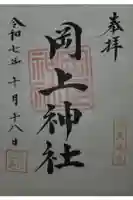 奉拝
岡上神社
令和七年十月十八日